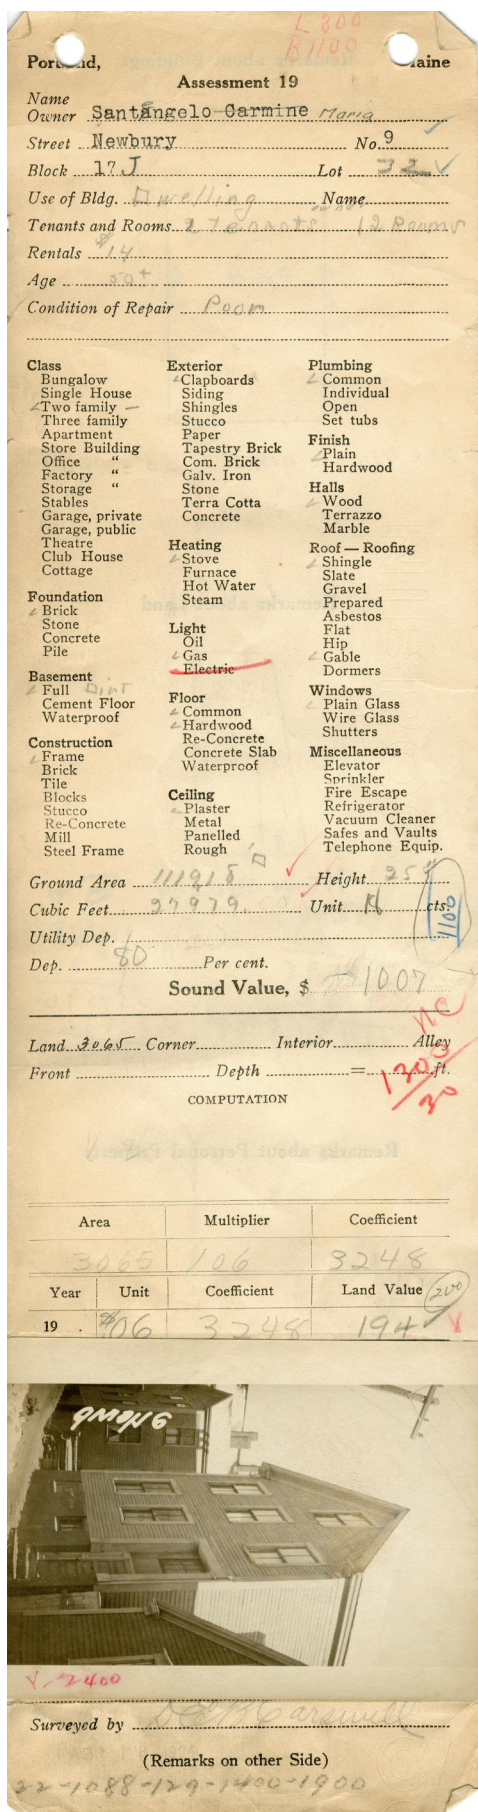 L 300
R 1100
Portland, Maine
Assessment 19
Name
Owner Santangelo Carmine Maria
Street Newbury No. 9
Block 17 J Lot 32
Use of Bldg. Dwelling Name
Tenants and Rooms 2 Tenants 12 Rooms
Rentals $14
Age 50+
Condition of Repair Poor
Class
Bungalow
Single House
Two family
Three family
Apartment
Store Building
Office "
Factory "
Storage "
Stables
Garage, private
Garage, public
Theatre
Club House
Cottage
Foundation
Brick
Stone
Concrete
Pile
Basement
Full Dirt
Cement Floor
Waterproof
Construction
Frame
Brick
Tile
Blocks
Stucco
Re-Concrete
Mill
Steel Frame
Exterior
Clapboards
Siding
Shingles
Stucco
Paper
Tapestry Brick
Com. Brick
Galv. Iron
Stone
Terra Cotta
Concrete
Heating
Stove
Furnace
Hot Water
Steam
Light
Oil
Gas
Electric
Floor
Common
Hardwood
Re-Concrete
Concrete Slab
Waterproof
Ceiling
Plaster
Metal
Panelled
Rough
Plumbing
Common
Individual
Open
Set tubs
Finish
Plain
Hardwood
Halls
Wood
Terrazzo
Marble
Roof — Roofing
Shingle
Slate
Gravel
Prepared
Asbestos
Flat
Hip
Gable
Dormers
Windows
Plain Glass
Wire Glass
Shutters
Miscellaneous
Elevator
Sprinkler
Fire Escape
Refrigerator
Vacuum Cleaner
Safes and Vaults
Telephone Equip.
Ground Area Height 25
Cubic Feet 27979 Unit 18 cts.
1100
Utility Dep.
Dep. 80 Per cent.
Sound Value, $ 1007
NC
Land 3065 Corner Interior Alley
Front Depth = ft.
1300
30
COMPUTATION
Area Multiplier Coefficient
3065 106 3248
Year Unit Coefficient Land Value 200
19 . $06 3248 194
9 Newb
V-2400
Surveyed by Carswell
(Remarks on other Side)
22-1088-129-1400-1900